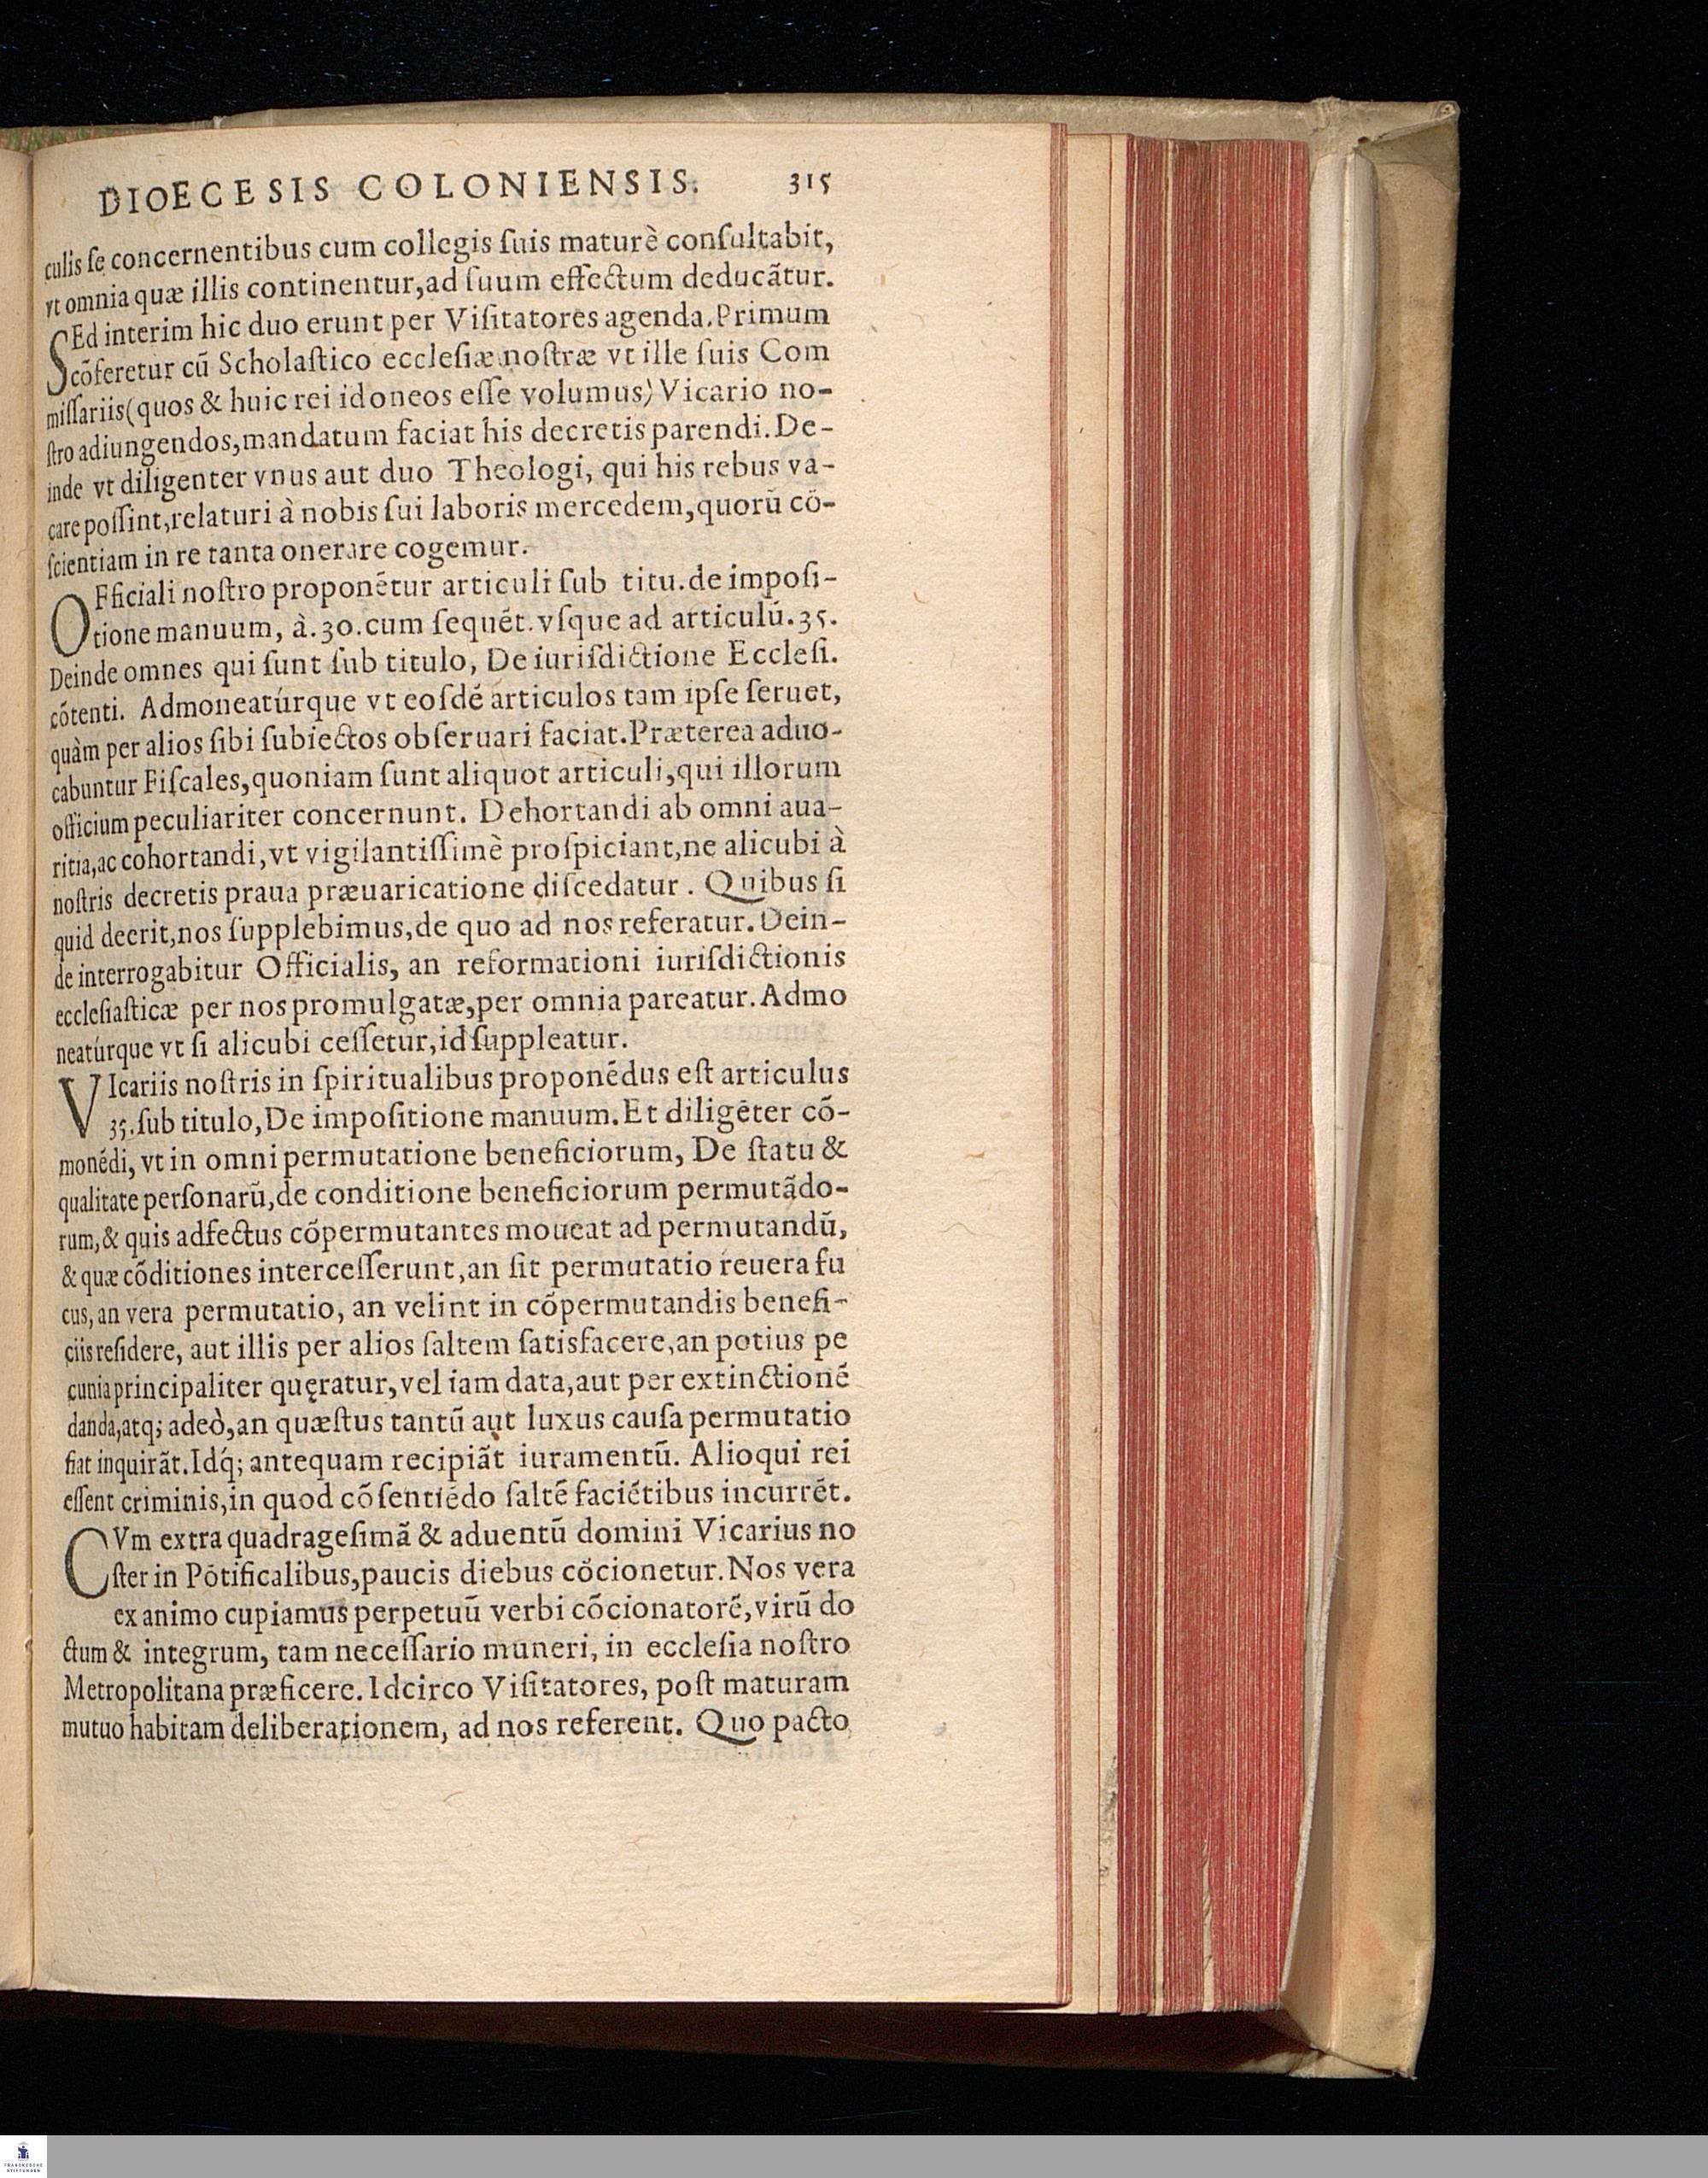 DIOECESIS COLONIENSIS. 315
culis ſe concernentibus cum collegis ſuis maturè conſultabit,
vt omnia quæ illis continentur,ad ſuum effectum deducãtur.
SEd interim hic duo erunt per Viſitatores agenda.Primum
cõferetur cũ Scholaſtico eccleſiæ noſtræ vt ille ſuis Com
miſſariis(quos & huic rei idoneos eſſe volumus) Vicario no-
ſtro adiungendos,mandatum faciat his decretis parendi.De-
inde vt diligenter vnus aut duo Theologi, qui his rebus va-
care poſſint,relaturi à nobis ſui laboris mercedem,quorũ cõ-
ſcientiam in re tanta onerare cogemur.
OFficiali noſtro proponẽtur articuli ſub titu.de impoſi-
tione manuum, à.30.cum ſequẽt.vſque ad articulũ.35.
Deinde omnes qui ſunt ſub titulo, De iuriſdictione Eccleſi.
cõtenti. Admoneatúrque vt eoſdẽ articulos tam ipſe ſeruet,
quàm per alios ſibi ſubiectos obſeruari faciat.Præterea aduo-
cabuntur Fiſcales,quoniam ſunt aliquot articuli,qui illorum
officium peculiariter concernunt. Dehortandi ab omni aua-
ritia,ac cohortandi,vt vigilantiſſimè proſpiciant,ne alicubi à
noſtris decretis praua præuaricatione diſcedatur. Quibus ſi
quid deerit,nos ſupplebimus,de quo ad nos referatur. Dein-
de interrogabitur Officialis, an reformationi iuriſdictionis
eccleſiaſticæ per nos promulgatæ,per omnia pareatur. Admo
neatúrque vt ſi alicubi ceſſetur,id ſuppleatur.
VIcariis noſtris in ſpiritualibus proponẽdus eſt articulus
35.ſub titulo,De impoſitione manuum.Et diligẽter cõ-
monẽdi, vt in omni permutatione beneficiorum, De ſtatu &
qualitate perſonarũ,de conditione beneficiorum permutãdo-
rum,& quis adfectus cõpermutantes moueat ad permutandũ,
& quæ cõditiones interceſſerunt,an ſit permutatio reuera fu
cus, an vera permutatio, an velint in cõpermutandis benefi-
ciis reſidere, aut illis per alios ſaltem ſatisfacere,an potius pe
cunia principaliter quęratur,vel iam data,aut per extinctionẽ
danda,atq; adeò,an quæſtus tantũ aut luxus cauſa permutatio
fiat inquirãt.Idq́; antequam recipiãt iuramentũ. Alioqui rei
eſſent criminis,in quod cõſentiẽdo ſaltẽ faciẽtibus incurrẽt.
CVm extra quadrageſimã & aduentũ domini Vicarius no
ſter in Põtificalibus,paucis diebus cõcionetur.Nos vera
ex animo cupiamus perpetuũ verbi cõcionatorẽ,virũ do
ctum & integrum, tam neceſſario muneri, in eccleſia noſtro
Metropolitana præficere. Idcirco Viſitatores, poſt maturam
mutuo habitam deliberationem, ad nos referent. Quo pacto
FRANCKESCHE
STIFTUNGEN